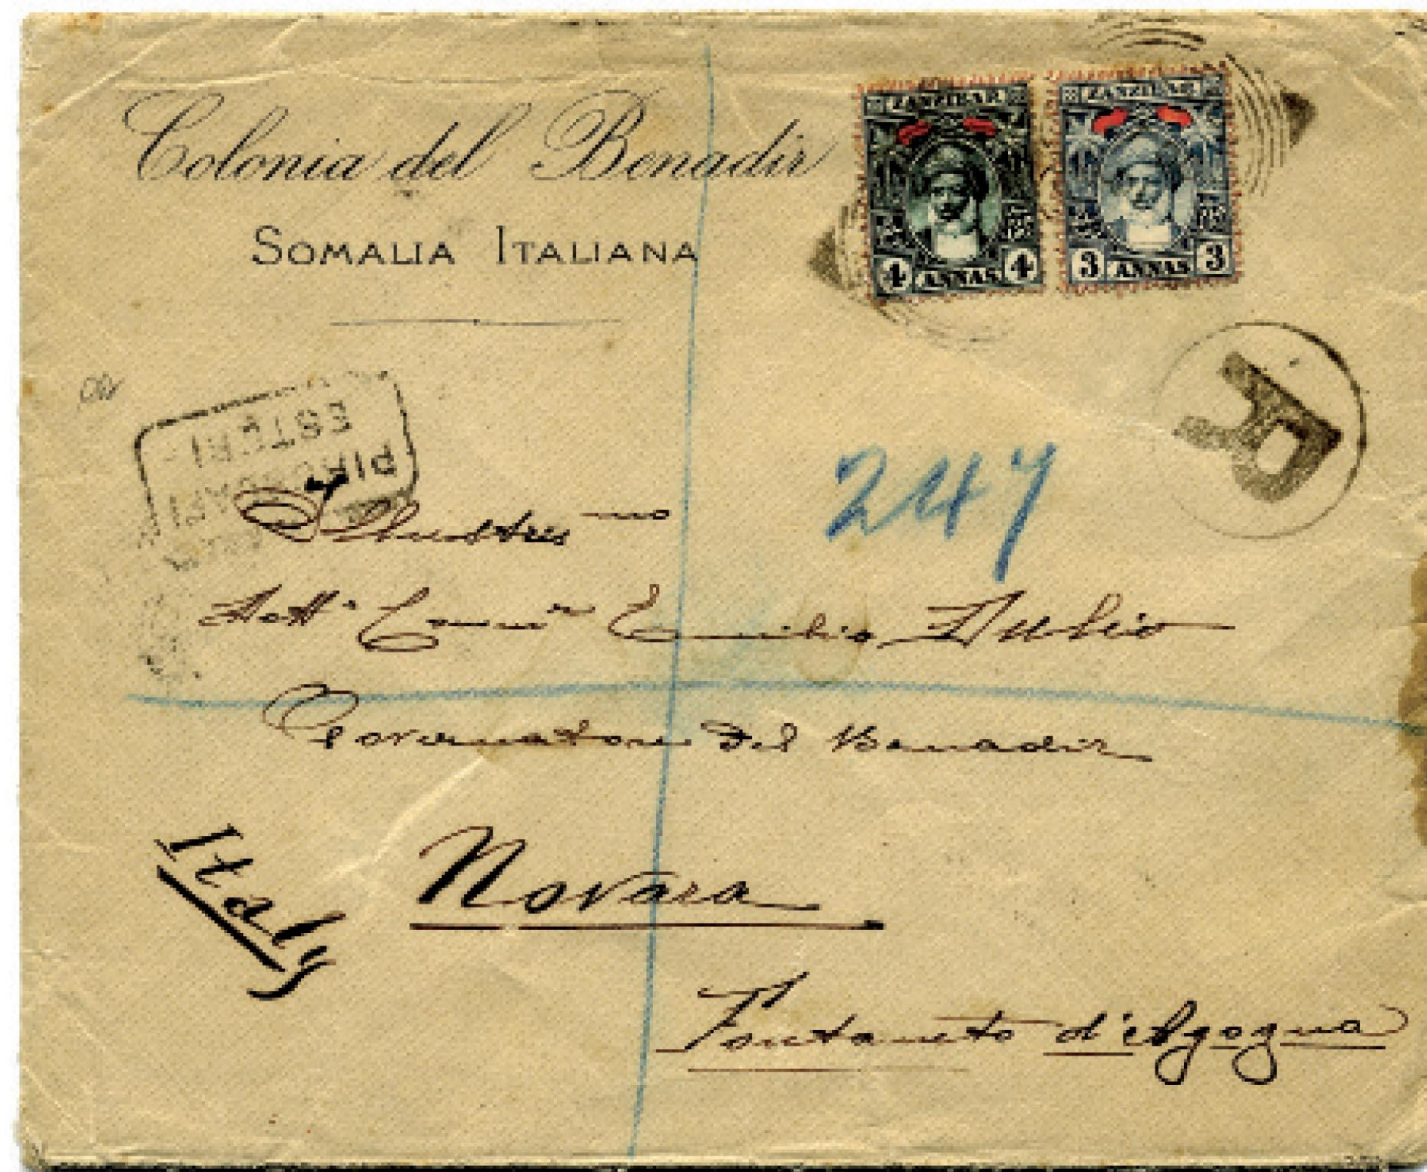 Colonia del Benadir
SOMALIA ITALIANA
ZANZIBAR
4 ANNAS 4
ZANZIBAR
3 ANNAS 3
R
PIROSCAFI
ESTERI
247
Illustris mo
Comm r Emilio Dulio
Governatore del Benadir
Italy
Novara
Fontaneto d'Agogna